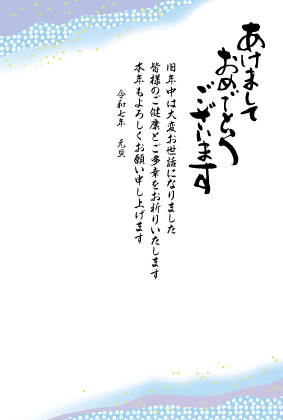 あけまして
おめでとう
ございます
旧年中は大変お世話になりました
皆様のご健康とご多幸をお祈りいたします
本年もよろしくお願い申し上げます
令和七年　元旦